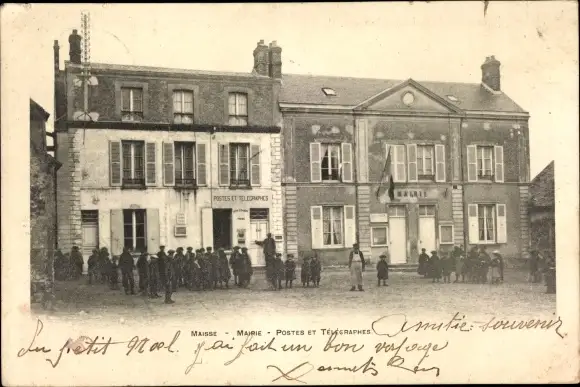 POSTES ET TÉLÉGRAPHES
MAIRIE
MAISSE - MAIRIE - POSTES ET TÉLÉGRAPHES
Amitié, souvenir
du petit Noël j'ai fait un bon voyage